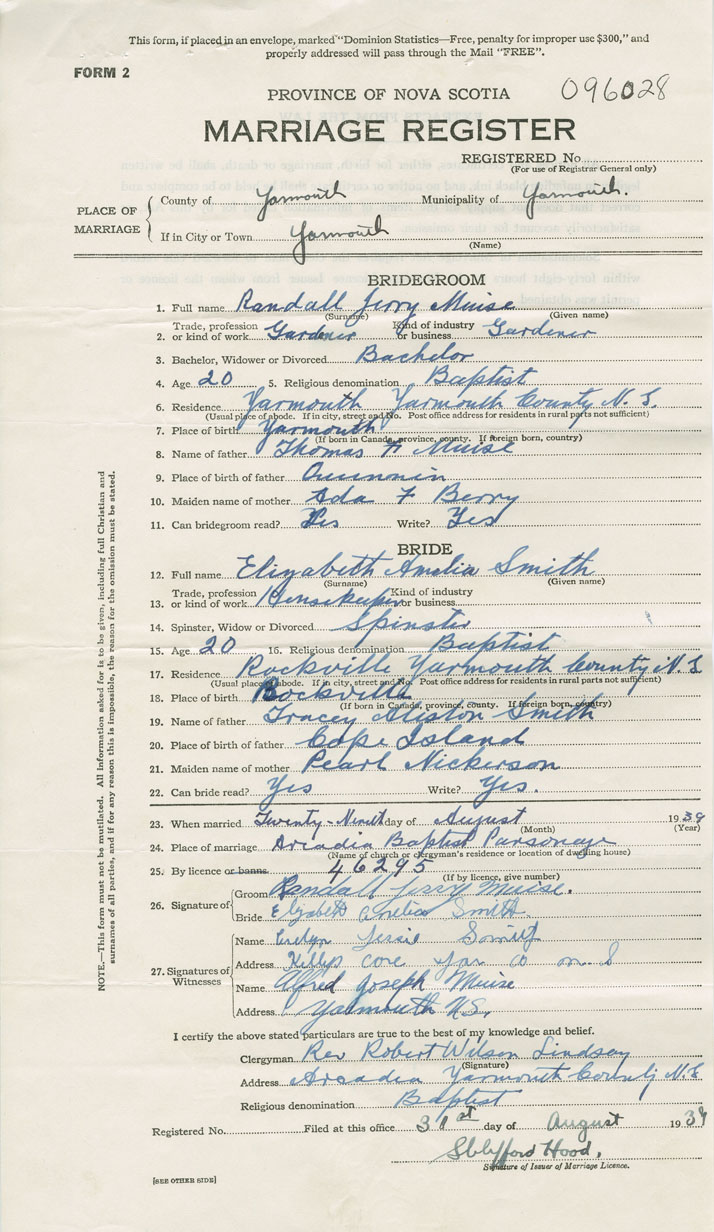 This form, if placed in an envelope, marked "Dominion Statistics—Free, penalty for improper use $300," and
properly addressed will pass through the Mail "FREE".
FORM 2
096028
PROVINCE OF NOVA SCOTIA
MARRIAGE REGISTER
REGISTERED No.
(For use of Registrar General only)
PLACE OF MARRIAGE
County of Yarmouth Municipality of Yarmouth.
If in City or Town Yarmouth
(Name)
BRIDEGROOM
1. Full name Randall Jerry Muise
(Surname) (Given name)
2. Trade, profession or kind of work Gardener Kind of industry or business Gardener
3. Bachelor, Widower or Divorced Bachelor
4. Age 20 5. Religious denomination Baptist
6. Residence Yarmouth Yarmouth County N. S.
(Usual place of abode. If in city, street and No. Post office address for residents in rural parts not sufficient)
7. Place of birth Yarmouth
(If born in Canada, province, county. If foreign born, country)
8. Name of father Thomas Muise
9. Place of birth of father
10. Maiden name of mother Ada F Berry
11. Can bridegroom read? Yes Write? Yes
BRIDE
12. Full name Elizabeth Amelia Smith
(Surname) (Given name)
13. Trade, profession or kind of work Housekeeper Kind of industry or business
14. Spinster, Widow or Divorced Spinster
15. Age 20 16. Religious denomination Baptist
17. Residence Rockville Yarmouth County N. S
(Usual place of abode. If in city, street and No. Post office address for residents in rural parts not sufficient)
18. Place of birth Rockville
(If born in Canada, province, county. If foreign born, country)
19. Name of father Tracey Smith
20. Place of birth of father Cape Island
21. Maiden name of mother Pearl Nickerson
22. Can bride read? Yes Write? Yes.
23. When married Twenty-Ninth day of August 1939
(Month) (Year)
24. Place of marriage Arcadia Baptist Parsonage
(Name of church or clergyman's residence or location of dwelling house)
25. By licence or banns 46295
(If by licence, give number)
26. Signature of
Groom Randall Jerry Muise.
Bride Elizabeth Amelia Smith
27. Signatures of Witnesses
Name Evelyn Jessie Smith
Address Cove Yar Co N S
Name Alfred Joseph Muise
Address Yarmouth N.S.
I certify the above stated particulars are true to the best of my knowledge and belief.
Clergyman Rev Robert Wilson Lindsay
(Signature)
Address Arcadia Yarmouth County N.S
Religious denomination Baptist
Registered No. Filed at this office 31st day of August 1939
Hood.
Signature of Issuer of Marriage Licence.
[SEE OTHER SIDE]
NOTE.—This form must not be mutilated. All information asked for is to be given, including full Christian and
surnames of all parties, and if for any reason this is impossible, the reason for the omission must be stated.